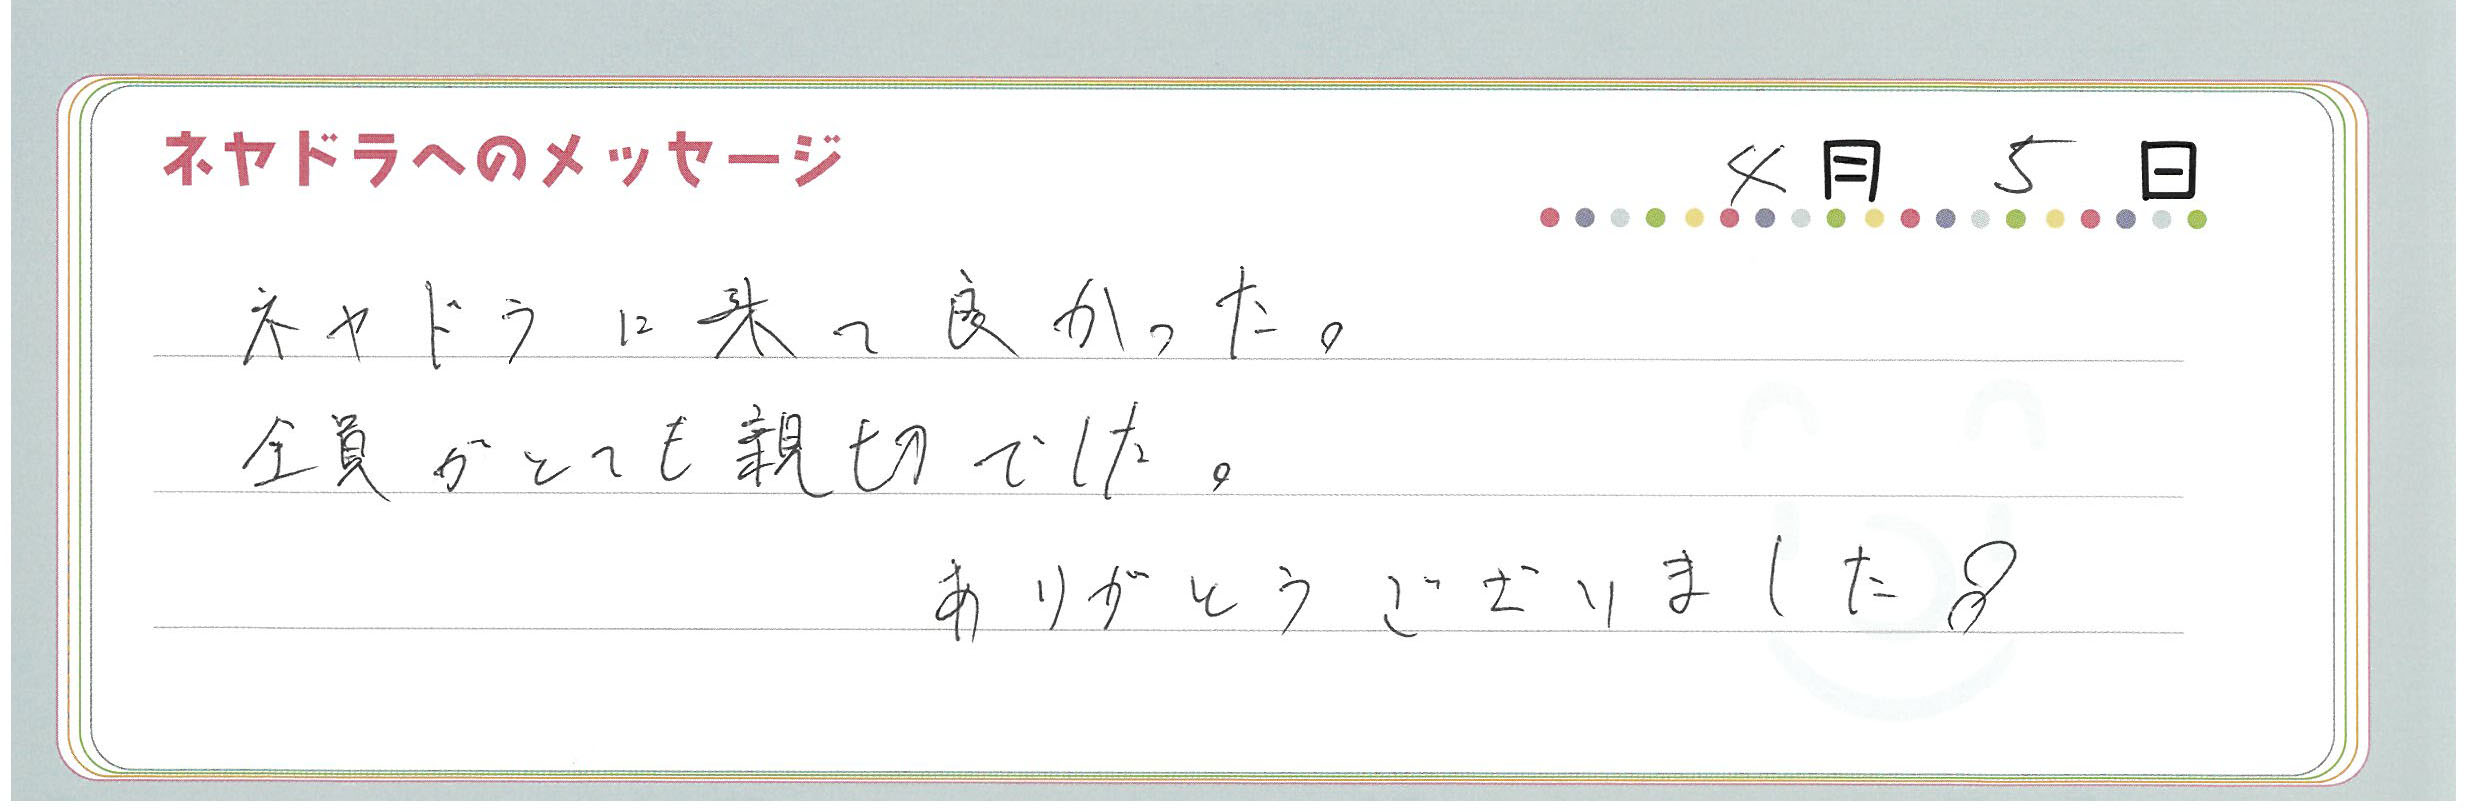 ネヤドラへのメッセージ
4月 5日
ネヤドラに来て良かった。
全員がとても親切でした。
ありがとうございました